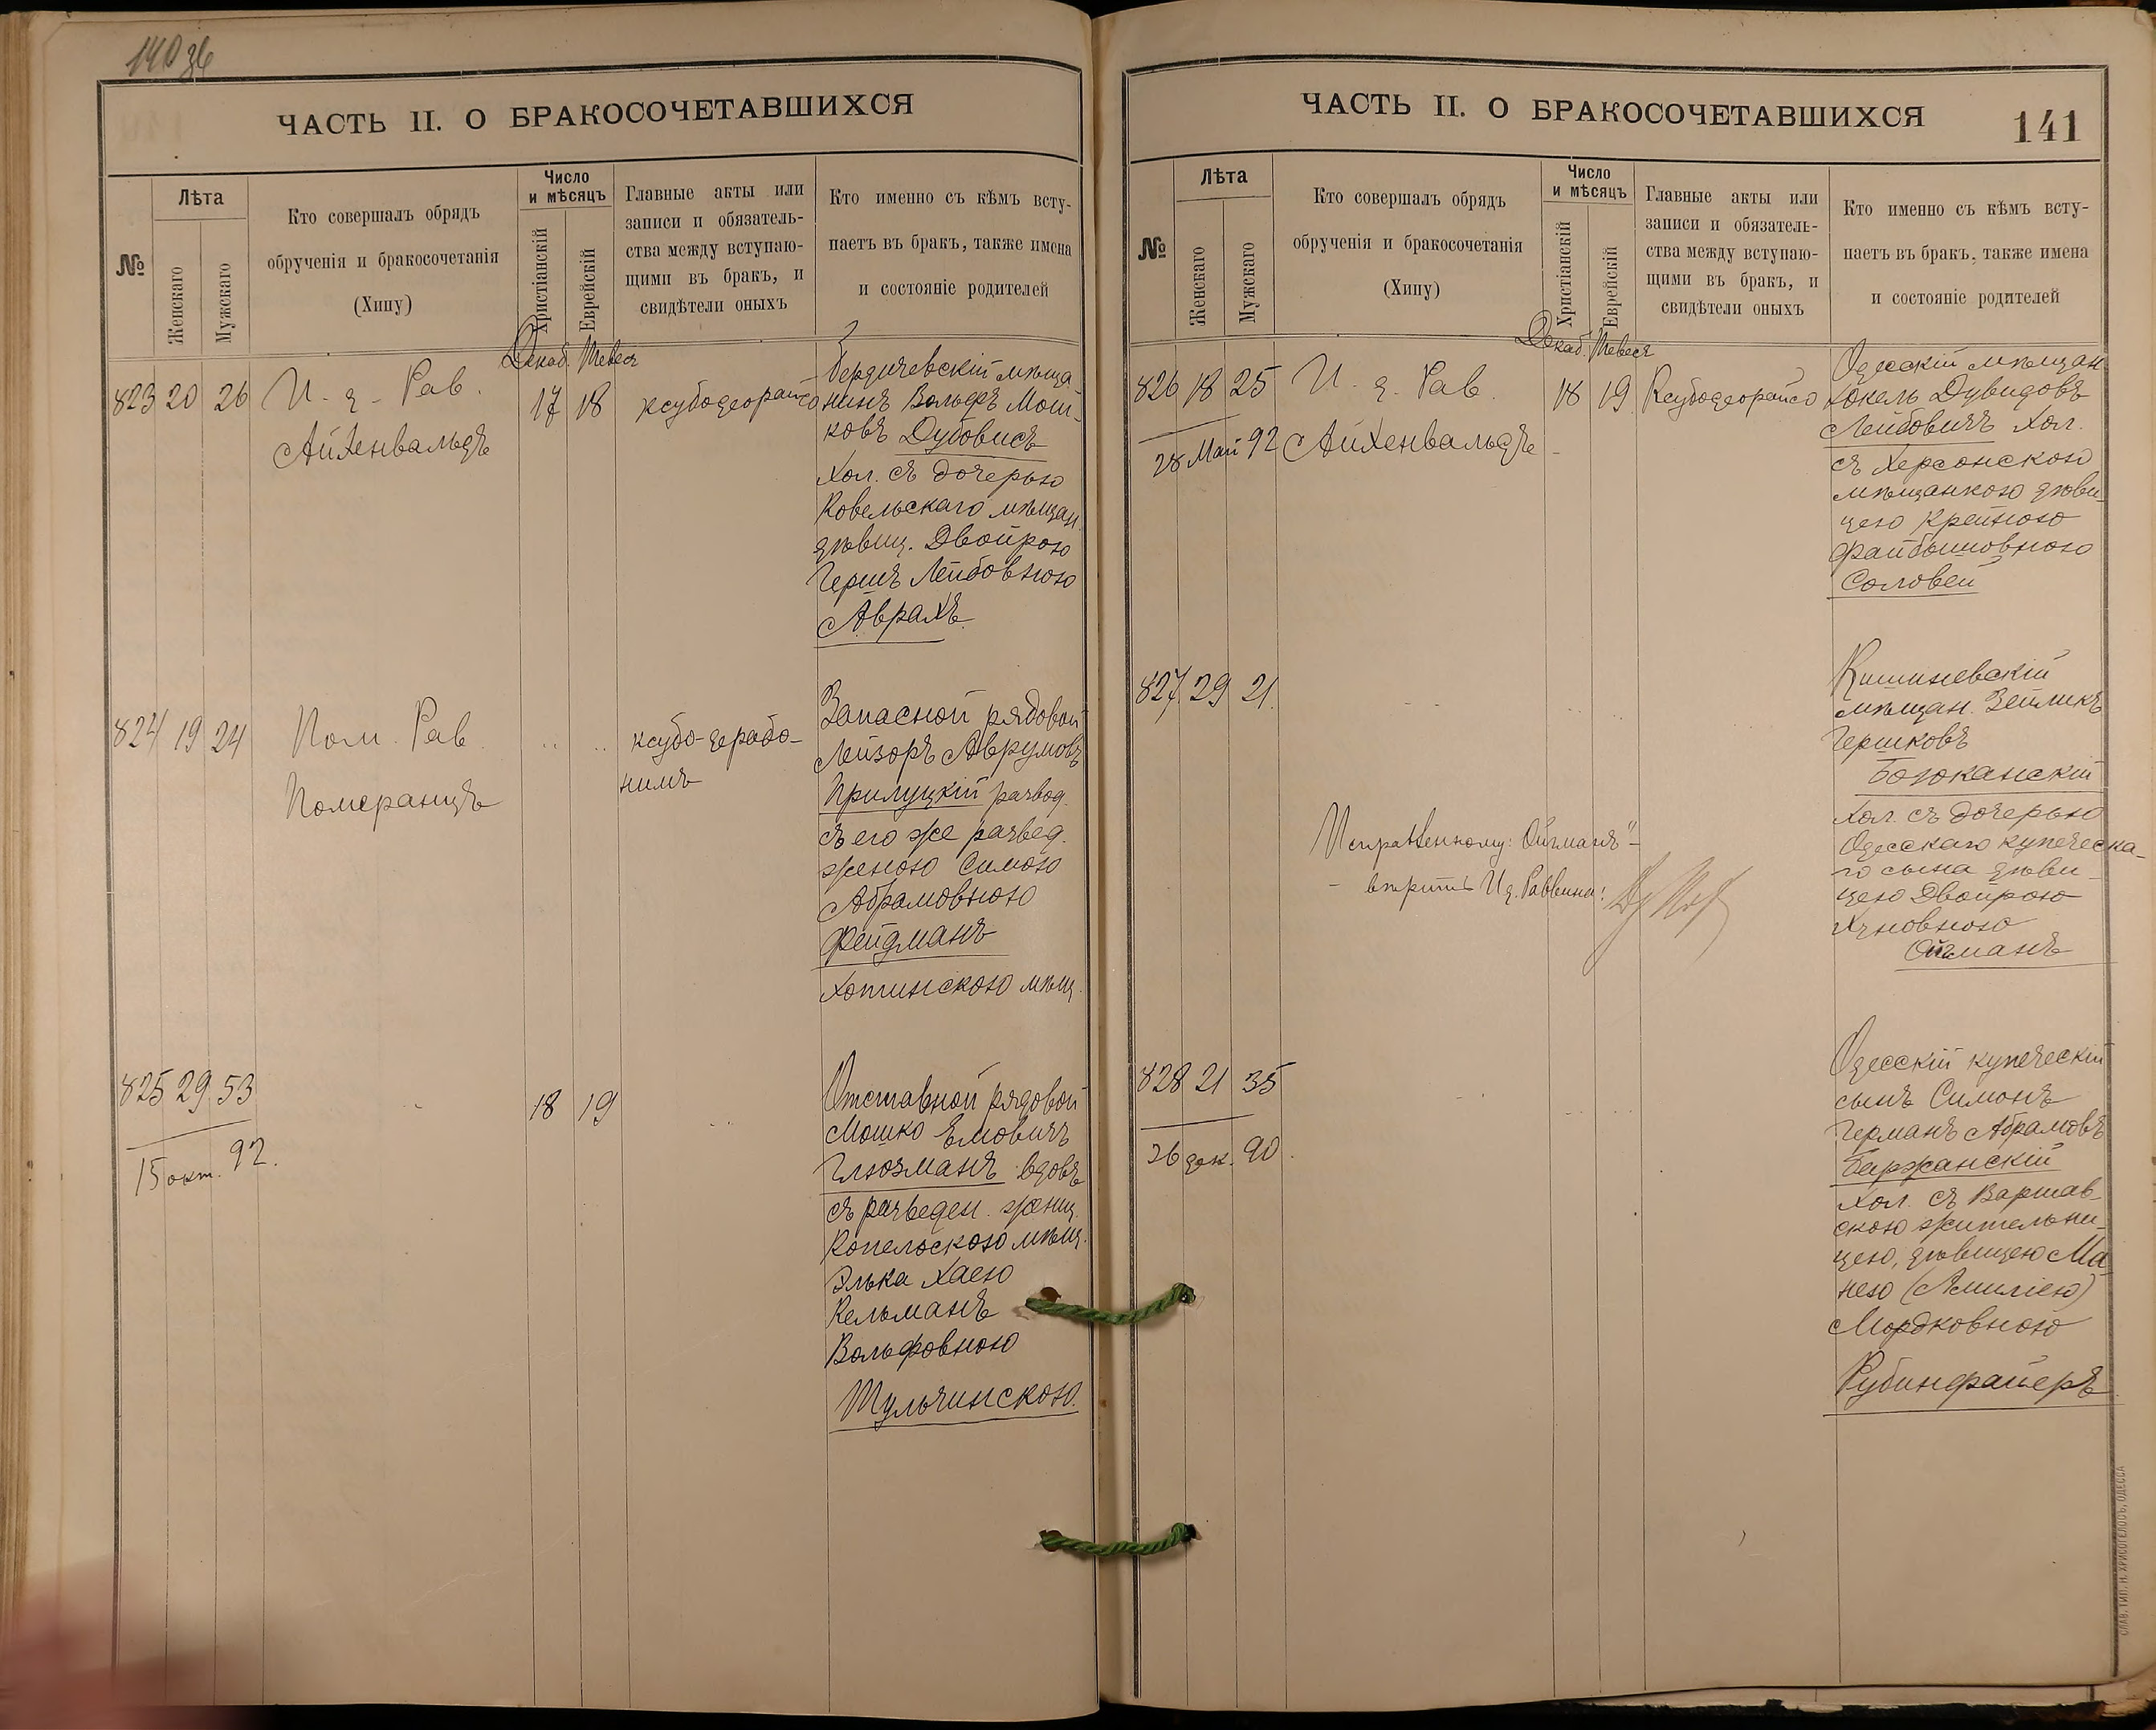 140 об
ЧАСТЬ II. О БРАКОСОЧЕТАВШИХСЯ
№
Лѣта
Женскаго
Мужскаго
Кто совершалъ обрядъ
обрученія и бракосочетанія
(Хипу)
Число
и мѣсяцъ
Христіанскій
Еврейскій
Главные акты или
записи и обязатель-
ства между вступаю-
щими въ бракъ, и
свидѣтели оныхъ
Кто именно съ кѣмъ всту-
паетъ въ бракъ, также имена
и состояніе родителей
Декаб. Тевесъ
823 20 26
И. д. Рав.
Айхенвальдъ
17 18
ксубодеорайсо
Бердичевскій мѣща-
нинъ Вольфъ Мош-
ковъ Дубовисъ
Хол. съ дочерью
Ковельскаго мѣщан.
дѣвиц. Двойрою
Гершъ Лейбовною
Аврахъ
824 19 24
Пом. Рав.
Померанцъ
ксубо-дерабо-
нимъ
Запасной рядовой
Лейзоръ Аврумовъ
Прилуцкій развод.
съ его же развед.
женою Симою
Абрамовною
Фейдманъ
Хотинскою мѣщ.
825 29 53
15 окт. 92.
18 19
Отставной рядовой
Мошко Емовичъ
Глюзманъ вдовъ
съ разведен. женщ.
Копельскою мѣщ.
Элька Хаею
Кельманъ
Вольфовною
Тульчинскою.
ЧАСТЬ II. О БРАКОСОЧЕТАВШИХСЯ
141
№
Лѣта
Женскаго
Мужскаго
Кто совершалъ обрядъ
обрученія и бракосочетанія
(Хипу)
Число
и мѣсяцъ
Христіанскій
Еврейскій
Главные акты или
записи и обязатель-
ства между вступаю-
щими въ бракъ, и
свидѣтели оныхъ
Кто именно съ кѣмъ всту-
паетъ въ бракъ, также имена
и состояніе родителей
Декаб. Тевесъ
826 18 25
28 Май 92
И. д. Рав.
Айхенвальдъ
18 19
Ксубодеорайсо
Одесскій мѣщан.
Іокель Дувидовъ
Лейбовичъ Хол.
съ Херсонскою
мѣщанкою дѣви-
цею Крейною
Файбышовною
Соловей
827 29 21
Исправленному: Ойгманъ"-
- вѣрить И д. Раввина:
Кишиневскій
мѣщан. Зейликъ
Гершковъ
Боюканскій
Хол. съ дочерью
Одесскаго купеческа-
го сына дѣви-
цею Двойрою
Хуновною
828 21 35
26 дек. 90.
Одесскій купеческій
сынъ Симонъ
Германъ Абрамовъ
Баржанскій
Хол. съ Варшав-
скою жительни-
цею, дѣвицею Ма-
нею (Эмиліею)
Мордковною
Рубинфайеръ
СЛАВ. ТИП. Н. ХРИСОГЕЛОСЪ, ОДЕССА